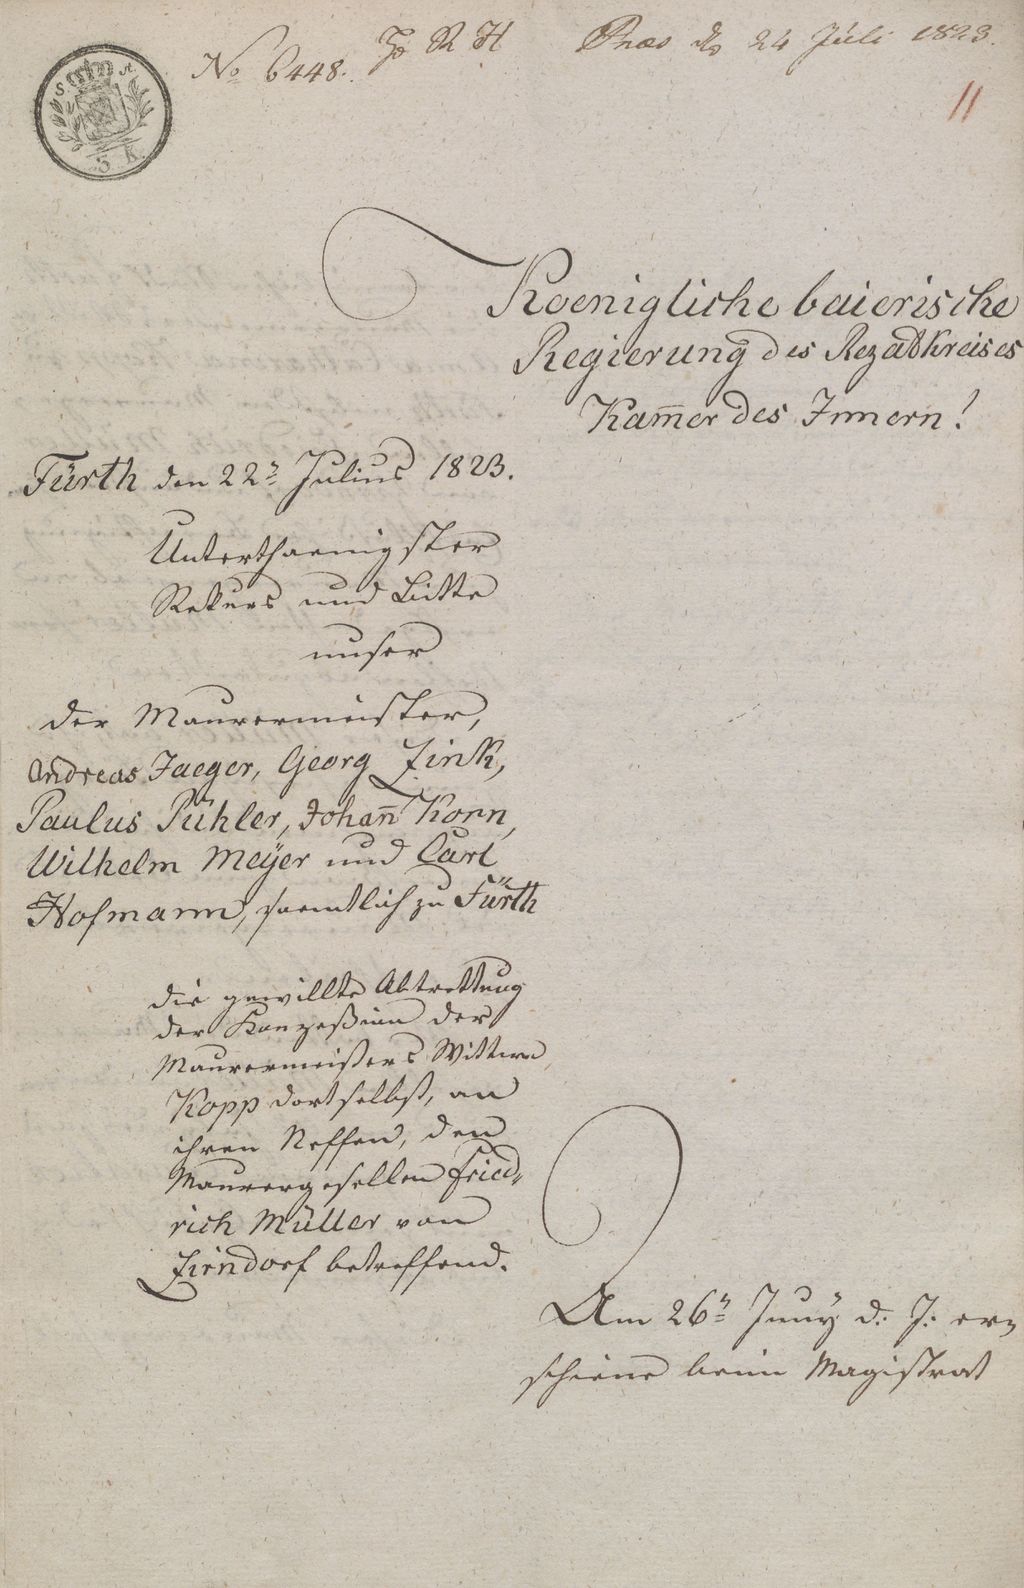 S. A.
3 K.
No 6448.
Praes. d. 24 Juli 1823.
11
Koenigliche baierische
Regierung des Rezatkreises
Kam̄er des Innern!
Fürth den 22n Julius 1823.
Unterthaenigster
Rekurs und Bitte
unser
der Maurermeister,
Andreas Jaeger, Georg Zink,
Paulus Pühler, Johan̄ Korn,
Wilhelm Meÿer und Carl
Hofmann, saemtlich zu Fürth
die gewillte Abtrettung
der Konzeßion der
Maurermeisters Wittwe
Kopp dortselbst, an
ihren Neffen, den
Maurergesellen Fried-
rich Müller von
Zirndorf betreffend.
Am 26n Juny d: J: er-
schiene beim Magistrat